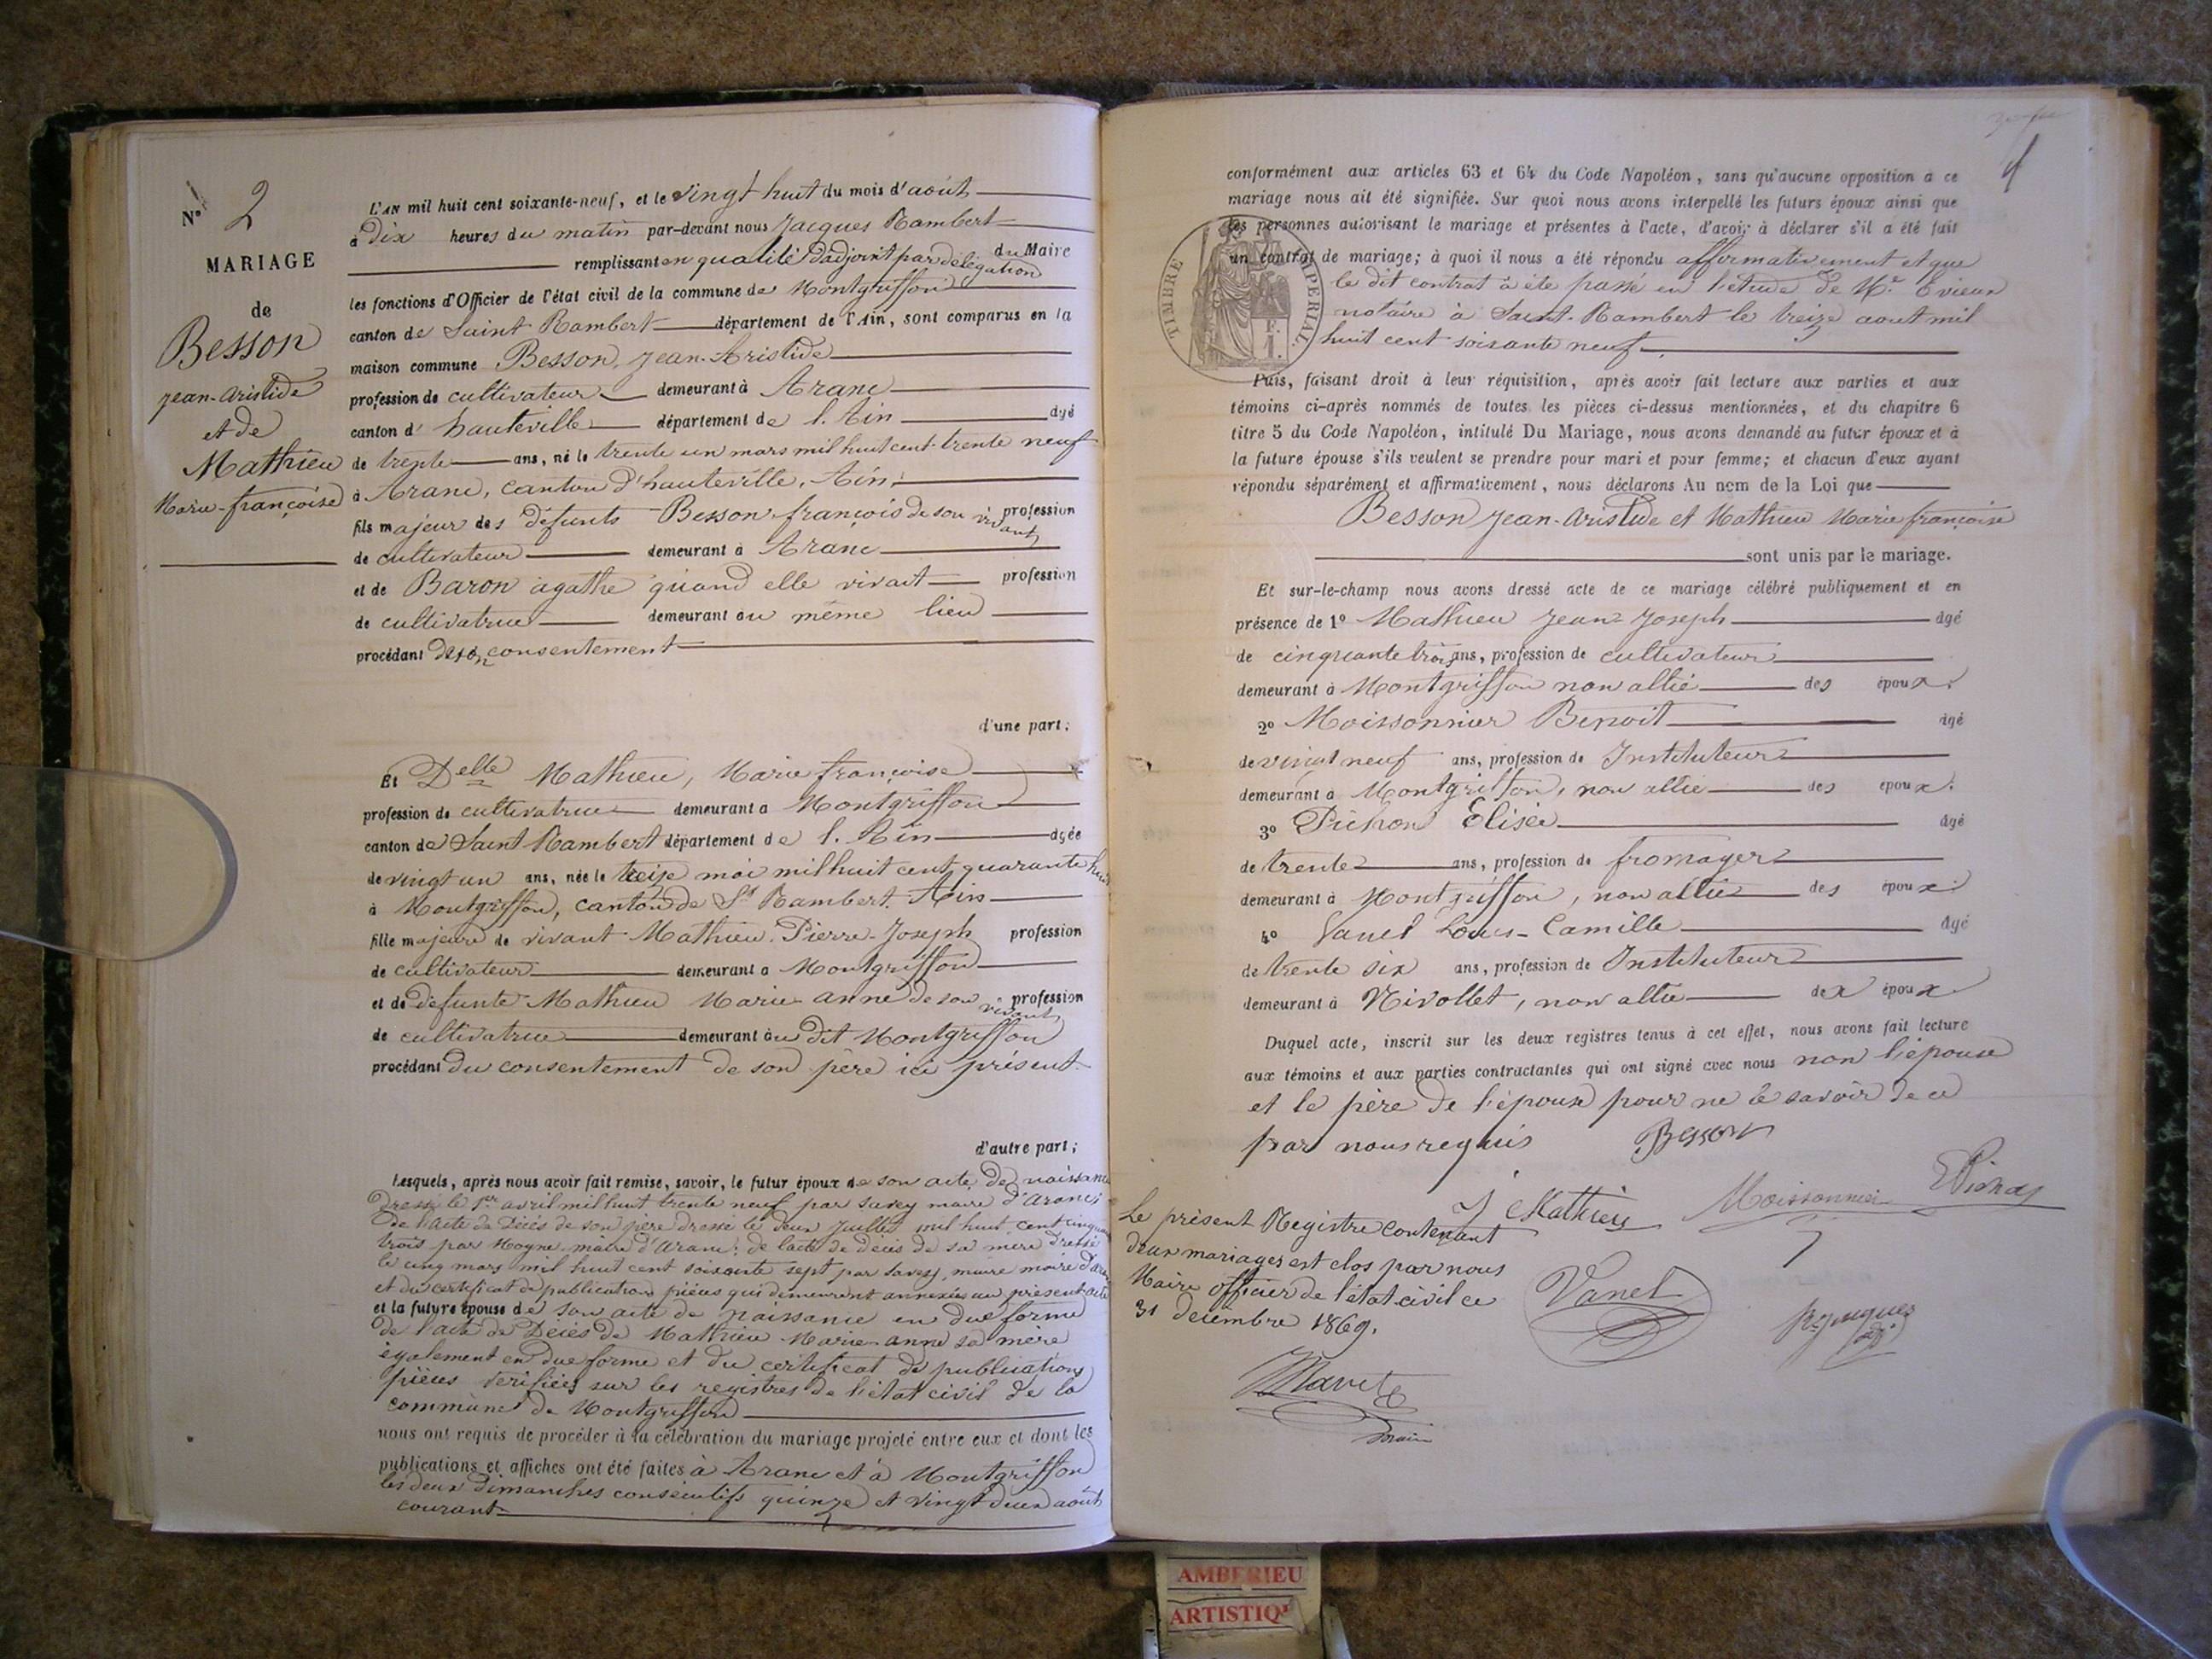 N° 2
MARIAGE
de
Besson
Jean-Aristide
et de
Mathieu
Marie-françoise
L'AN mil huit cent soixante-neuf, et le vingt huit du mois d'août
à dix heures du matin par-devant nous Jacques Rambert
remplissant en qualité d'adjoint par délégation du Maire
les fonctions d'Officier de l'état civil de la commune de Montgriffon
canton de Saint-Rambert département de l'Ain, sont comparus en la
maison commune Besson, Jean-Aristide
profession de cultivateur demeurant à Aranc
canton d' hauteville département de l'Ain âgé
de trente ans, né le trente un mars mil huit cent trente neuf
à Aranc, canton d'hauteville, Ain,
fils majeur des défunts Besson françois de son vivant profession
de cultivateur demeurant à Aranc
et de Baron agathe quand elle vivait profession
de cultivatrice demeurant au même lieu
procédant de son consentement
d'une part;
Et Delle Mathieu, Marie françoise
profession de cultivatrice demeurant à Montgriffon
canton de Saint Rambert département de l'Ain âgée
de vingt un ans, née le treize mai mil huit cent quarante huit
à Montgriffon, canton de St Rambert. Ain
fille majeure de vivant Mathieu Pierre-Joseph profession
de cultivateur demeurant à Montgriffon
et de défunte Mathieu Marie-anne de son vivant profession
de cultivatrice demeurant au dit Montgriffon
procédant du consentement de son père ici présent
d'autre part;
Lesquels, après nous avoir fait remise, savoir, le futur époux de son acte de naissance
dressé le 1er avril mil huit trente neuf par maire d'Aranc,
de l'acte de décès de son père dressé le deux Juillet mil huit cent cinquante
trois par Moyne maire d'Aranc; de l'acte de décès de sa mère dressé
le cinq mars mil huit cent soixante sept par maire d'Aranc
et du certificat de publication pièces qui demeurent annexées au présent acte
et la future épouse de son acte de naissance en due forme
de l'acte de Décès de Mathieu Marie-anne sa mère
également en due forme et du certificat de publications
pièces vérifiées sur les registres de l'état civil de la
commune de Montgriffon
nous ont requis de procéder à la célébration du mariage projeté entre eux et dont les
publications et affiches ont été faites à Aranc et à Montgriffon
les deux dimanches consécutifs quinze et vingt deux août
courant
conformément aux articles 63 et 64 du Code Napoléon, sans qu'aucune opposition à ce
mariage nous ait été signifiée. Sur quoi nous avons interpellé les futurs époux ainsi que
les personnes autorisant le mariage et présentes à l'acte, d'avoir à déclarer s'il a été fait
un contrat de mariage; à quoi il nous a été répondu affirmativement et que
le dit contrat à été passé en l'étude de Mr Evieux
notaire à Saint-Rambert le treize aout mil
huit cent soixante neuf.
TIMBRE IMPÉRIAL
Puis, faisant droit à leur réquisition, après avoir fait lecture aux parties et aux
témoins ci-après nommés de toutes les pièces ci-dessus mentionnées, et du chapitre 6
titre 5 du Code Napoléon, intitulé Du Mariage, nous avons demandé au futur époux et à
la future épouse s'ils veulent se prendre pour mari et pour femme; et chacun d'eux ayant
répondu séparément et affirmativement, nous déclarons Au nom de la Loi que
Besson Jean-Aristide et Mathieu Marie françoise
sont unis par le mariage.
Et sur-le-champ nous avons dressé acte de ce mariage célébré publiquement et en
présence de 1° Mathieu Jean-Joseph âgé
de cinquante trois ans, profession de cultivateur
demeurant à Montgriffon non allié des époux.
2° Moissonnier Benoit âgé
de vingt neuf ans, profession de Instituteur
demeurant à Montgriffon, non allié des époux.
3° Elisée âgé
de trente ans, profession de fromager
demeurant à Montgriffon, non allié des époux.
4° Vanel Louis-Camille âgé
de trente six ans, profession de Instituteur
demeurant à Nivollet, non allié des époux.
Duquel acte, inscrit sur les deux registres tenus à cet effet, nous avons fait lecture
aux témoins et aux parties contractantes qui ont signé avec nous non l'épouse
et le père de l'épouse pour ne le savoir de ce
par nous requis Besson
J Mathieu Moissonnier
Le présent Registre contenant
deux mariages est clos par nous
Maire officier de l'état civil ce
31 décembre 1869.
Vanel
R. Jacques
adj
maire
AMBERIEU
ARTISTIQ